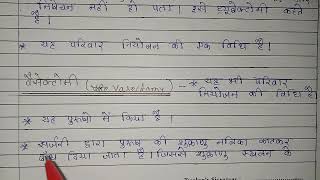 निषेचन नहीं हो पाता। इसे ट्यूबेक्टोमी कहते
है।
* यह परिवार नियोजन की एक विधि है।
वैसेक्टोमी (Vasectomy) -- * यह भी परिवार
नियोजन की विधि है।
* यह पुरुषों में किया है।
* सर्जरी द्वारा पुरुष की शुक्राणु नलिका काटकर
बाँध दिया जाता है। जिससे शुक्राणु स्खलन के